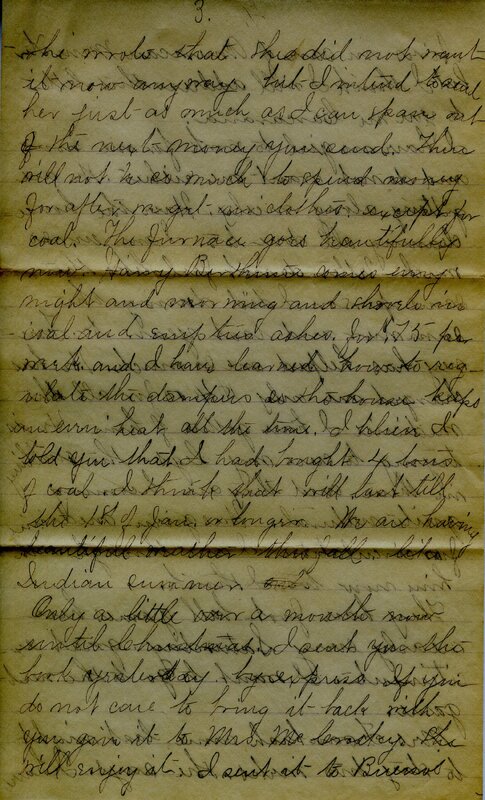 3.
She wrote that she did not want
it now anyway but I intend to send
her just as much as I can spare out
of the next money you send. There
will not be so much to spend money
for after we get in clothes except for
coal. The furnace goes beautifully
now. Harry comes every
night and morning and shovels in
coal and empties ashes. for .75 per
week and I have learned how to reg
ulate the dampers so the house keeps
an even heat all the time. I believe I
told you that I had bought 4 tons
of coal. I think that will last till
the 1st of Jan. or longer. We are having
beautiful weather this fall. like
Indian summer
Only a little over a month now
until Christmas. I sent you the
book yesterday by express. If you
do not care to bring it back with
you give it to Mrs. She
will enjoy it. I sent it to Buenos